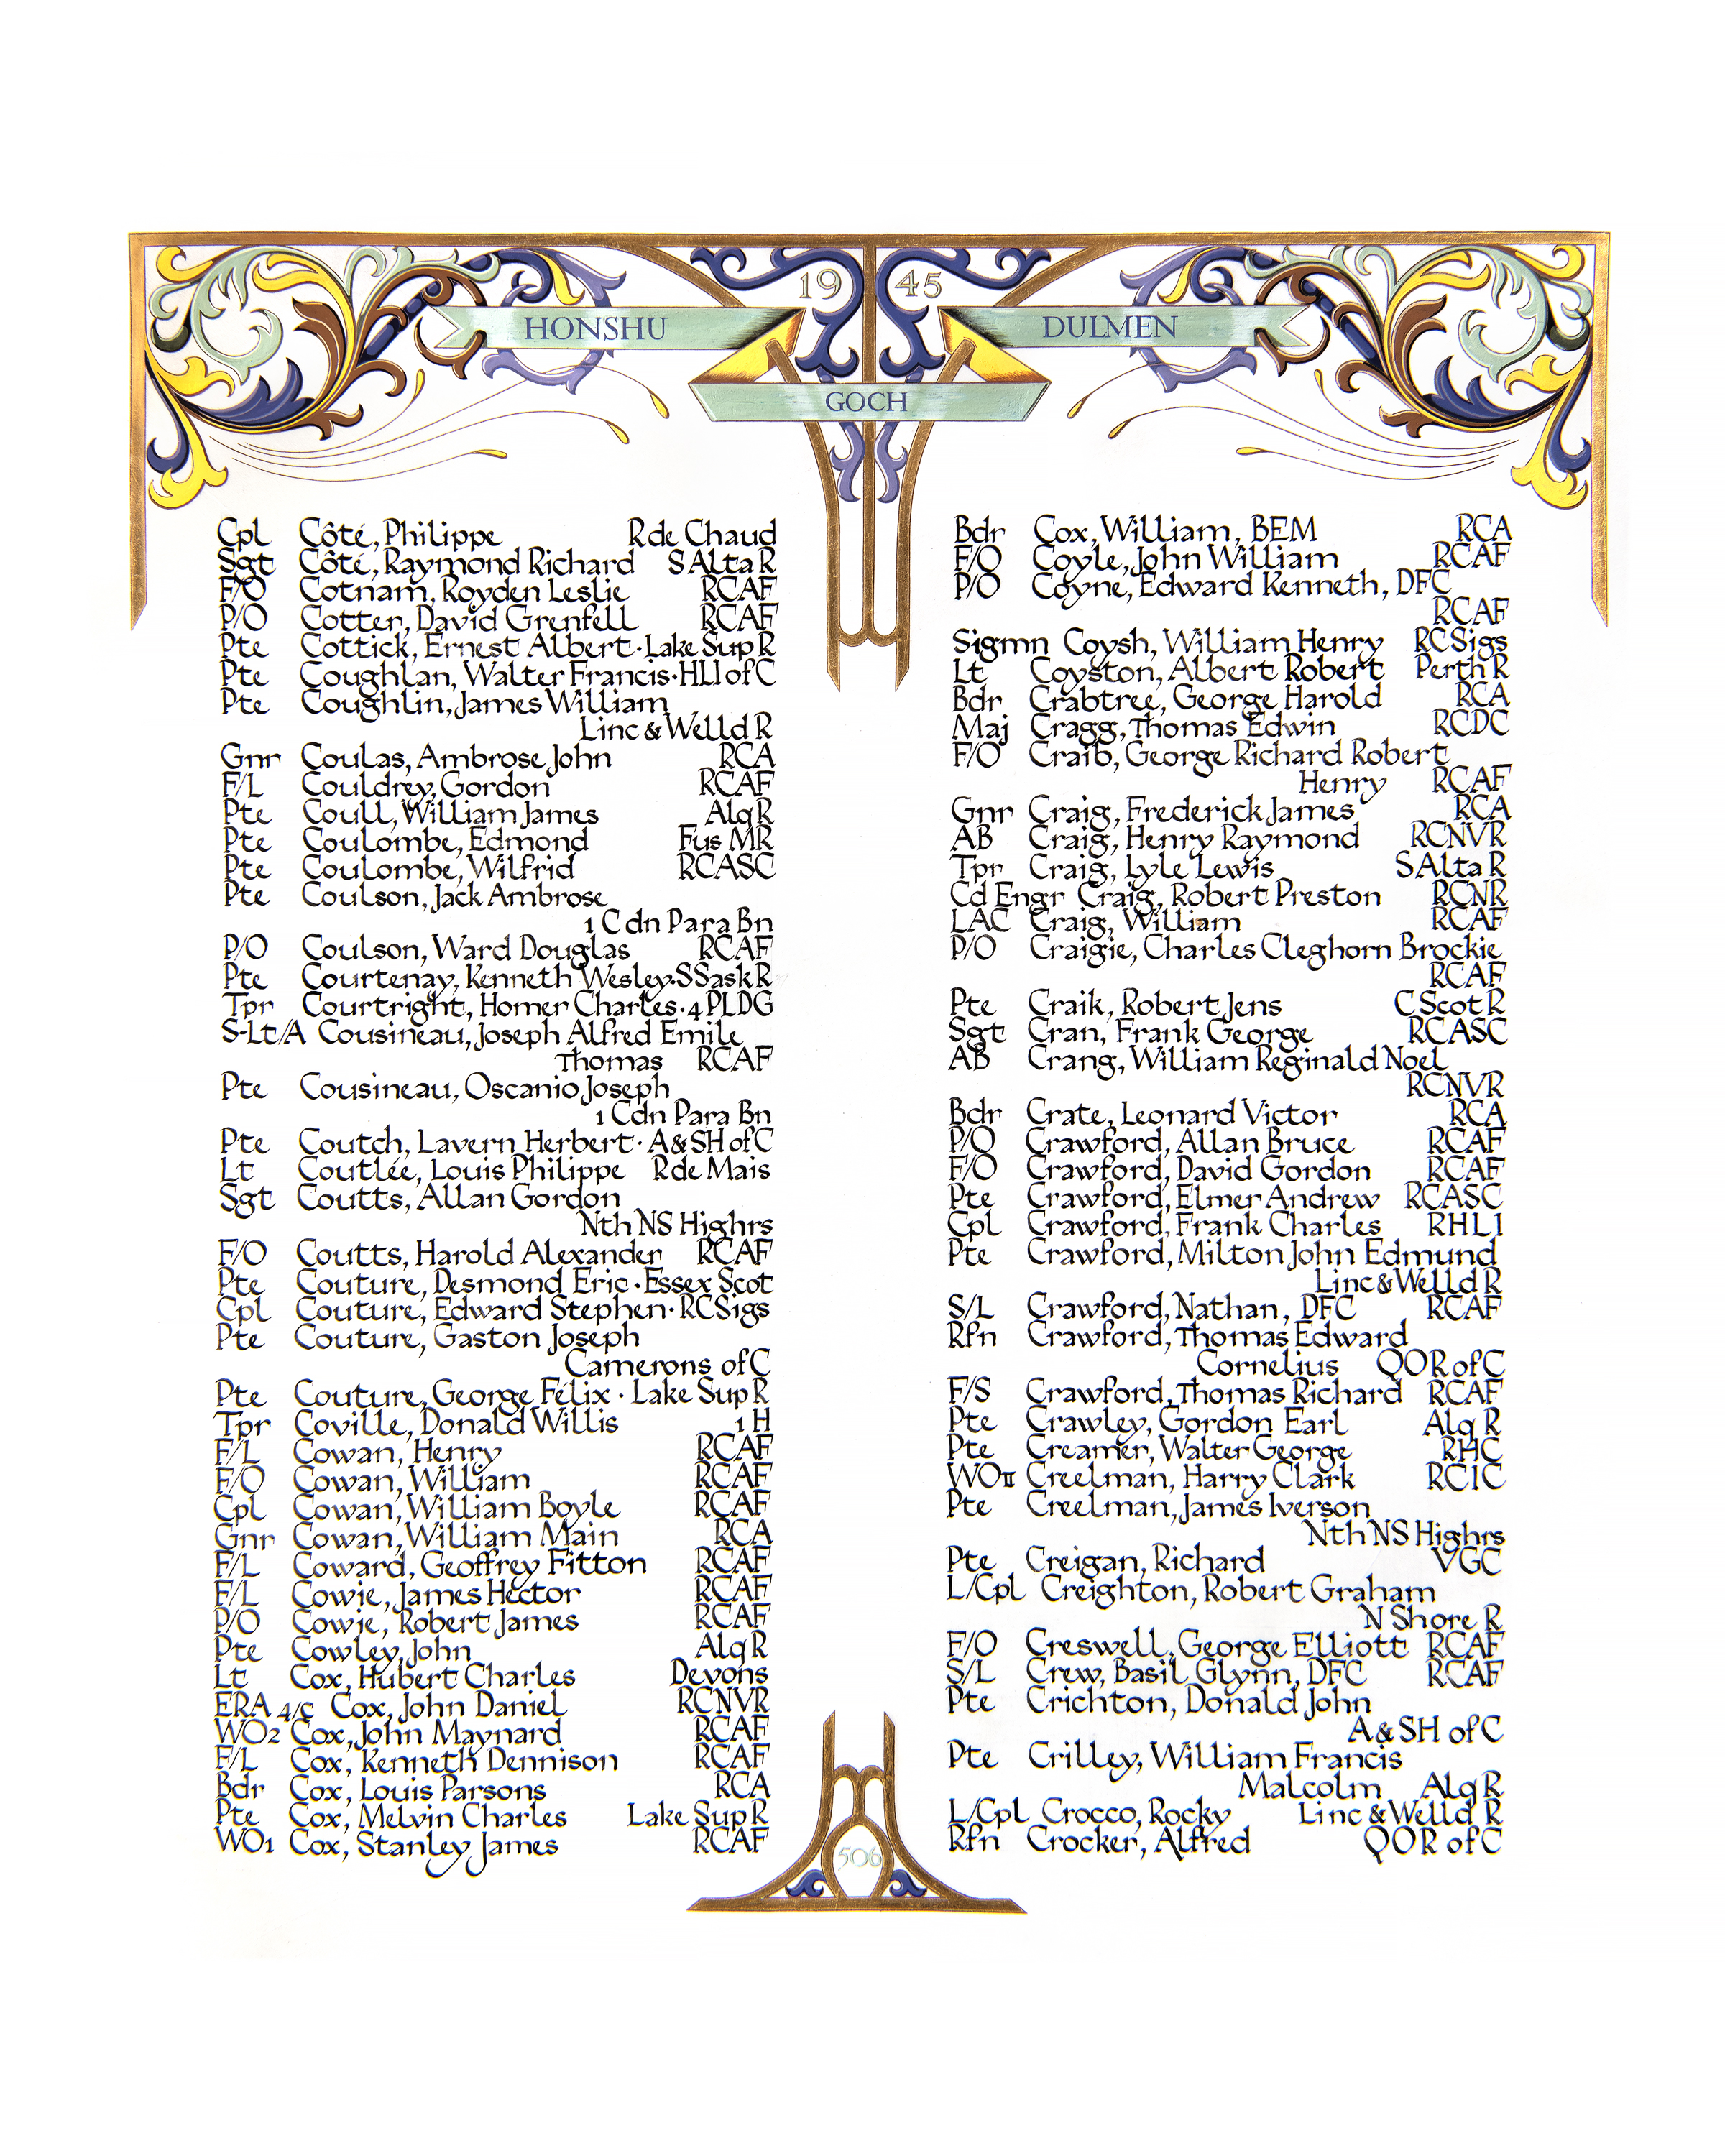 19 45
HONSHU
DULMEN
GOCH
Cpl Côté, Philippe R de Chaud
Sgt Côté, Raymond Richard S Alta R
F/O Cotnam, Royden Leslie RCAF
P/O Cotter, David Grenfell RCAF
Pte Cottick, Ernest Albert · Lake Sup R
Pte Coughlan, Walter Francis · HLI of C
Pte Coughlin, James William
Linc & Welld R
Gnr Coulas, Ambrose John RCA
F/L Couldrey, Gordon RCAF
Pte Coull, William James Alq R
Pte Coulombe, Edmond Fus MR
Pte Coulombe, Wilfrid RCASC
Pte Coulson, Jack Ambrose
1 Cdn Para Bn
P/O Coulson, Ward Douglas RCAF
Pte Courtenay, Kenneth Wesley · S Sask R
Tpr Courtright, Homer Charles · 4 PLDG
S-Lt/A Cousineau, Joseph Alfred Emile
Thomas RCAF
Pte Cousineau, Oscanio Joseph
1 Cdn Para Bn
Pte Coutch, Lavern Herbert · A & SH of C
Lt Coutlée, Louis Philippe R de Mais
Sgt Coutts, Allan Gordon
Nth NS Highrs
F/O Coutts, Harold Alexander RCAF
Pte Couture, Desmond Eric · Essex Scot
Cpl Couture, Edward Stephen · RC Sigs
Pte Couture, Gaston Joseph
Camerons of C
Pte Couture, George Félix · Lake Sup R
Tpr Coville, Donald Willis 1 H
F/L Cowan, Henry RCAF
F/O Cowan, William RCAF
Cpl Cowan, William Boyle RCAF
Gnr Cowan, William Main RCA
F/L Coward, Geoffrey Fitton RCAF
F/L Cowie, James Hector RCAF
P/O Cowie, Robert James RCAF
Pte Cowley, John Alq R
Lt Cox, Hubert Charles Devons
ERA 4/c Cox, John Daniel RCNVR
WO2 Cox, John Maynard RCAF
F/L Cox, Kenneth Dennison RCAF
Bdr Cox, Louis Parsons RCA
Pte Cox, Melvin Charles Lake Sup R
WO1 Cox, Stanley James RCAF
Bdr Cox, William, BEM RCA
F/O Coyle, John William RCAF
P/O Coyne, Edward Kenneth, DFC
RCAF
Sigmn Coysh, William Henry RC Sigs
Lt Coyston, Albert Robert Perth R
Bdr Crabtree, George Harold RCA
Maj Cragg, Thomas Edwin RCDC
F/O Craib, George Richard Robert
Henry RCAF
Gnr Craig, Frederick James RCA
AB Craig, Henry Raymond RCNVR
Tpr Craig, Lyle Lewis S Alta R
Cd Engr Craig, Robert Preston RCNR
LAC Craig, William RCAF
P/O Craigie, Charles Cleghorn Brockie
RCAF
Pte Craik, Robert Jens C Scot R
Sgt Cran, Frank George RCASC
AB Crang, William Reginald Noel
RCNVR
Bdr Crate, Leonard Victor RCA
P/O Crawford, Allan Bruce RCAF
F/O Crawford, David Gordon RCAF
Pte Crawford, Elmer Andrew RCASC
Cpl Crawford, Frank Charles RHLI
Pte Crawford, Milton John Edmund
Linc & Welld R
S/L Crawford, Nathan, DFC RCAF
Rfn Crawford, Thomas Edward
Cornelius QOR of C
F/S Crawford, Thomas Richard RCAF
Pte Crawley, Gordon Earl Alq R
Pte Creamer, Walter George RHC
WO II Creelman, Harry Clark RCIC
Pte Creelman, James Iverson
Nth NS Highrs
Pte Creigan, Richard VGC
L/Cpl Creighton, Robert Graham
N Shore R
F/O Creswell, George Elliott RCAF
S/L Crew, Basil Glynn, DFC RCAF
Pte Crichton, Donald John
A & SH of C
Pte Crilley, William Francis
Malcolm Alq R
L/Cpl Crocco, Rocky Linc & Welld R
Rfn Crocker, Alfred QOR of C
506